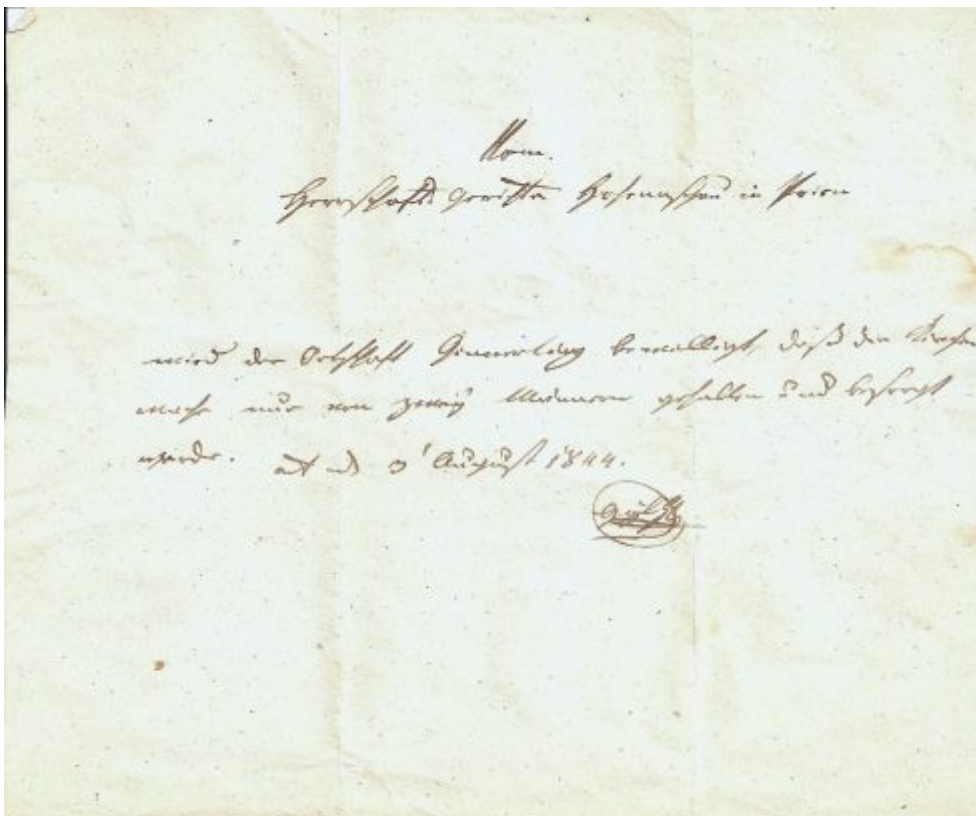 Vom
Herrschafts Gerichte Hohenaschau in Prien
wird der Ortschaft bewilligt, daß die Kirchen
wache nur von zwey Männern gehalten und besorgt
werde. 3' August 1844.